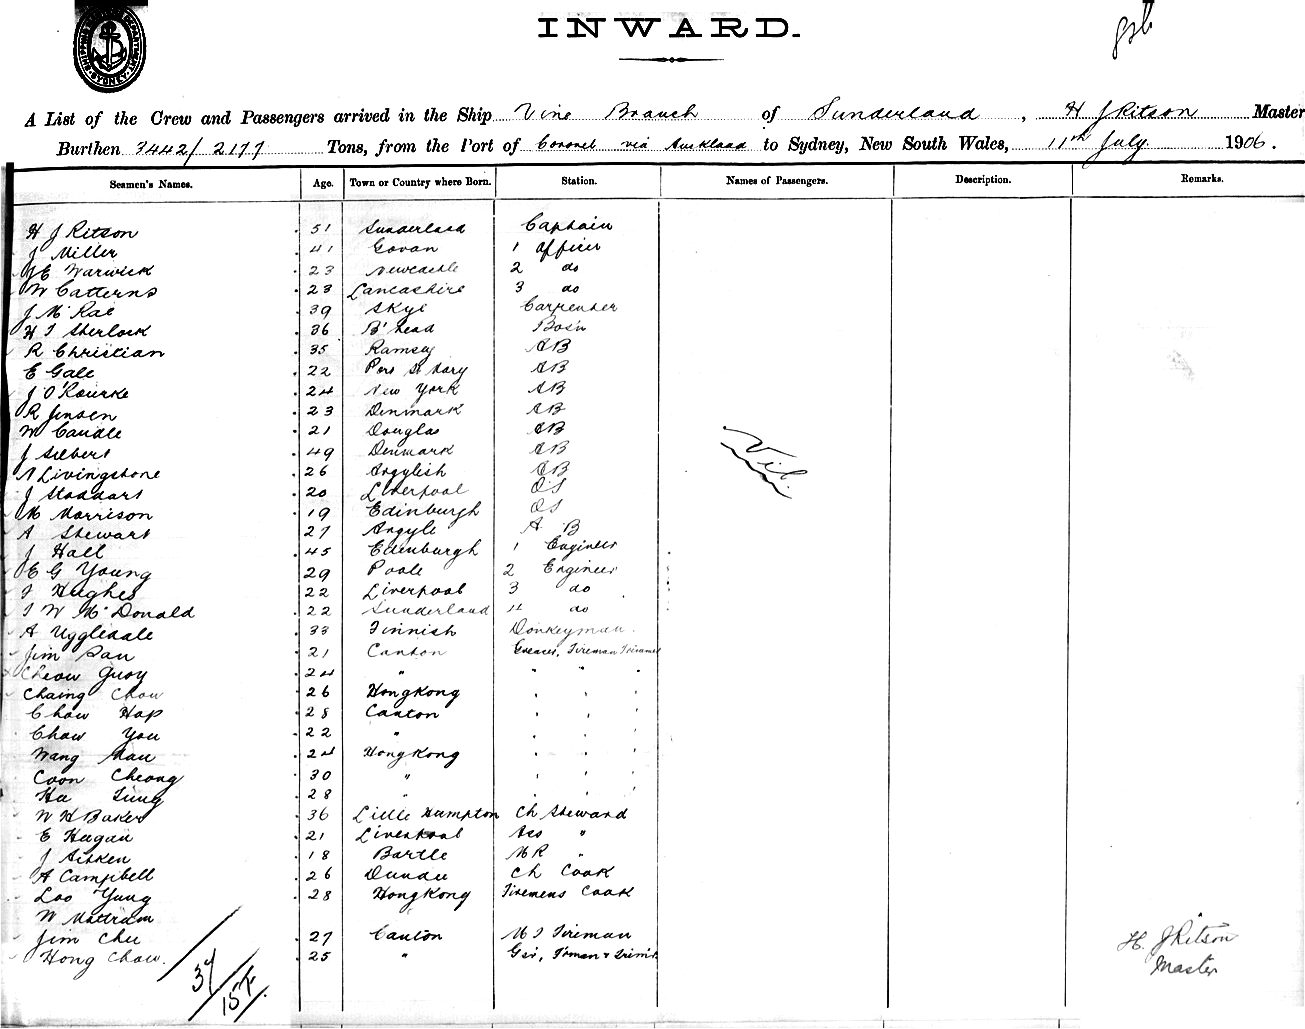 SHIPPING MASTER'S DEPARTMENT SYDNEY
INWARD.
A List of the Crew and Passengers arrived in the Ship Vine Branch of Sunderland, H J Ritson Master
Burthen 3442/2177 Tons, from the Port of Coronel via Auckland to Sydney, New South Wales, 11th July 1906.
Seamen's Names. Age. Town or Country where Born. Station. Names of Passengers. Description. Remarks.
H J Ritson 51 Sunderland Captain
J Miller 41 Govan 1 Officer
J E Warwick 23 Newcastle 2 do
W Catterns 23 Lancashire 3 do
J McRae 39 Skye Carpenter
H T Sherlock 36 B'head Bos'n
R Christian 35 Ramsey AB
E Gale 22 Port St Mary AB
J O'Rourke 24 New York AB
R Jensen 23 Denmark AB
W Caudle 21 Douglas AB
J Siebert 49 Denmark AB
A Livingstone 26 Argylish AB
J Stoddart 20 Liverpool OS
M Morrison 19 Edinburgh OS
A Stewart 27 Argyle A B
J Hall 45 Edinburgh 1 Engineer
E G Young 29 Poole 2 Engineer
T Hughes 22 Liverpool 3 do
T W McDonald 22 Sunderland 4 do
A Uggledale 33 Finnish Donkeyman
Jim Pau 21 Canton Greaser, Fireman Trimmer
Cheow Guoy 24 " " " "
Chaing Chow 26 Hongkong " " "
Chow Hop 28 Canton " " "
Chow You 22 " " " "
Wang Mau 24 Hongkong " " "
Coon Cheong 30 " " " "
Ha Tung 28 " " " "
W H Baker 36 Little Hampton Ch Steward
E Hagan 21 Liverpool Ass "
J Aitken 18 Bartle M R "
A Campbell 26 Dundee Ch Cook
Loo Yung 28 Hongkong Firemens Cook
W Mottram
Jim Chee 27 Canton No 1 Fireman
Hong Chow 25 " Gsr, F'man & Trim'r
Nil
37
15 F.
H. J Ritson
Master